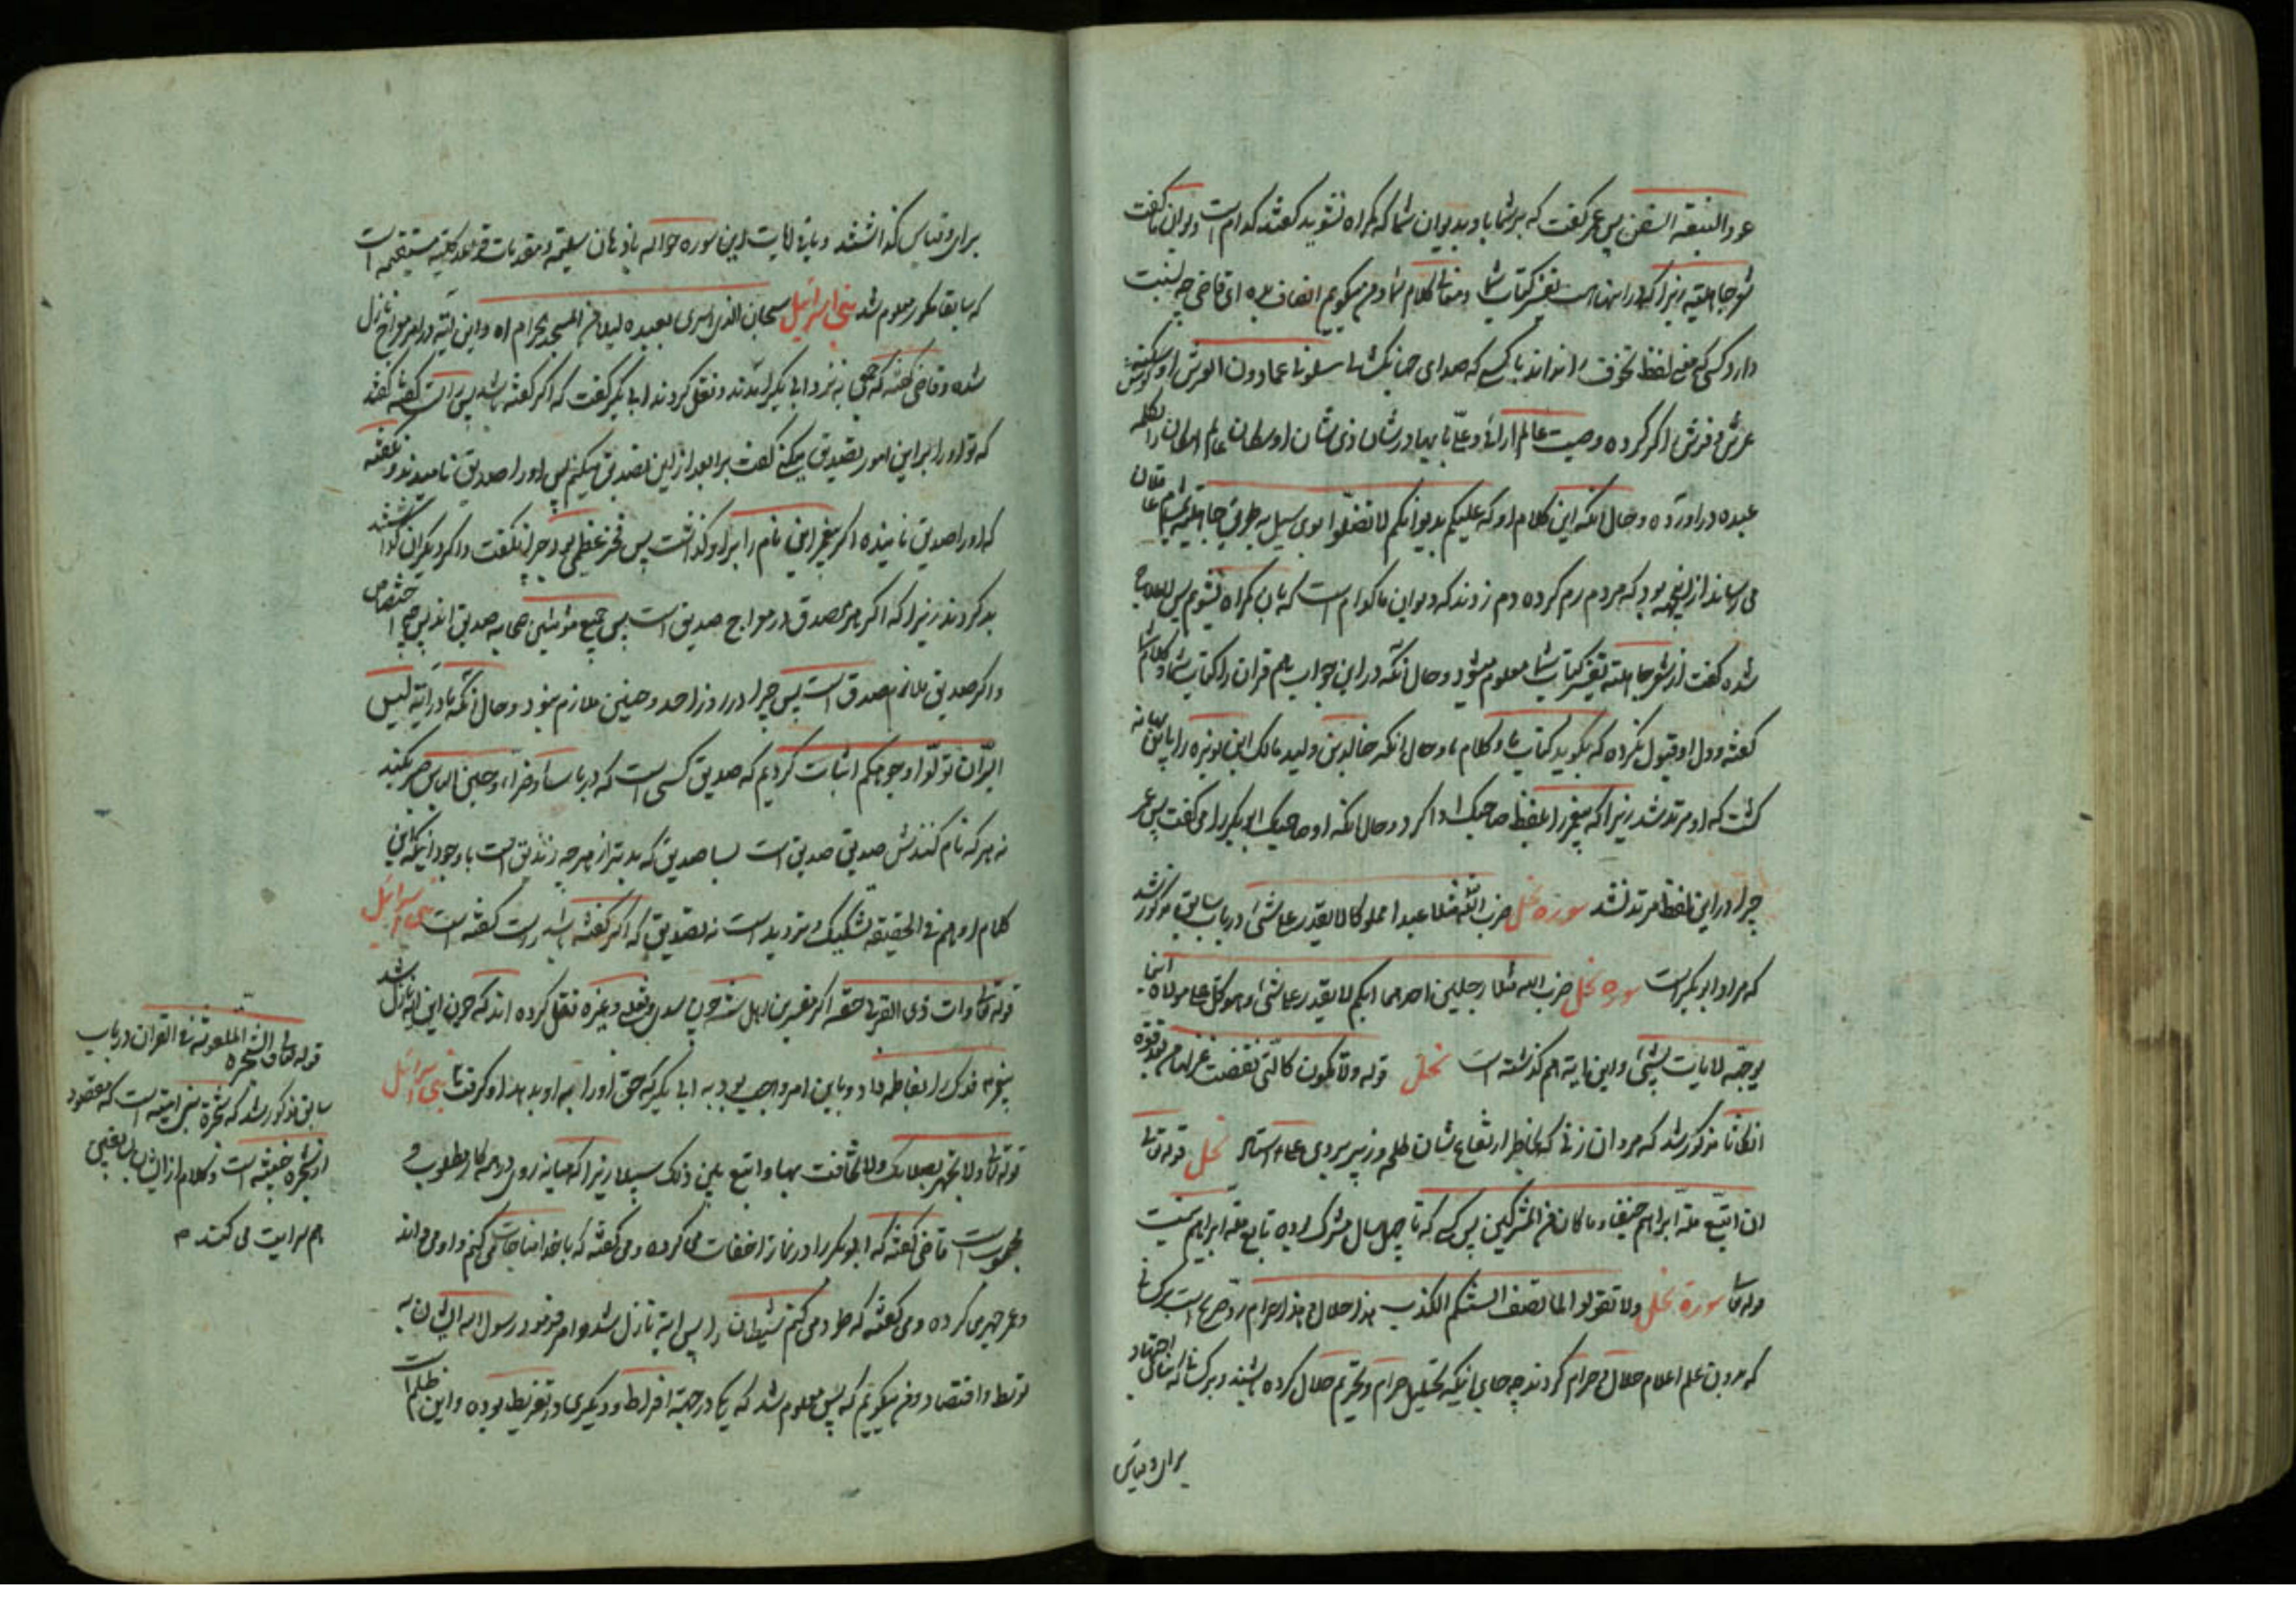 عود النبعة السفن پس عمر گفت که بر شما باد بدیوان شما که گمراه نشوید گفتند کدام است دیوان ما گفت
شعر جاهلیة زیرا که در اینهاست تفسیر کتاب شما و معانی کلام شما و من میگویم انصاف بده ای قاضی چه نسبت
دارد کسی که معنی لفظ تخوف را نداند با کسی که صدای سلونی عما دون العرش او
عرش و فرش اگر کرده وصیت عالم
عبده در اورده و حال انکه این کلام او که علیکم بدیوانکم لا تضلوا جاهلیة
می رساند از اینجهه بود که مردم رم کرده دم زدند که دیوان ما کدام است که بان گمراه نشویم پس لاعلاج
شده گفت از شعر جاهلیة تفسیر کتاب شما معلوم میشود و حال انکه در این جواب هم قران را کتاب شما و کلام شما
گفته و دل او قبول نکرده که بگوید کتاب ما و کلام ما و حال انکه خالد بن ولید مالک ابن نویره را باین بهانه
کشت که او مرتد شد زیرا که پیغمبر را بلفظ صاحبک ادا کرد و حال انکه او صاحبک ابو بکر را می گفت پس عمر
چرا در این لفظ مرتد نشد سوره نحل ضرب الله مثلا عبدا مملوکا لا یقدر علی شئ در باب سابق مذکور شد
که مراد ابو بکر است سوره نحل ضرب الله مثلا رجلین احدهما ابکم لا یقدر علی شئ و هو کل علی مولاه این
یوجهه لا یات بشئ و این ایة هم گذشته است نحل قوله و لا تکون کالتی نقضت غزلها من بعد قوة
انکاثا مذکور شد که مراد ان زنی که بخاطر ارتفاع شان ظلم و زیر بردی نحل قوله تعالی
ان اتبع ملة ابراهیم حنیفا و ما کان من المشرکین پس کسی که تا چهل سال مشرک بوده تابع ملة ابراهیم نیست
قوله تعالی سورة نحل و لا تقولوا لما تصف السنتکم الکذب هذا حلال و هذا حرام رد صریح است بر کسانی
که بدون علم اعلام حلال و حرام کردند چه جای انیکه تحلیل حرام و تحریم حلال کرده باشند و بر کسانی که بنای اجتهاد
برای و قیاس
برای و قیاس گذاشتند و باقی ایات این سوره حواله باذهان سلیمة و مقدمات قواعد کلیة مستقیمه است
که سابقا مذکور و معلوم شد بنی اسرائیل سبحان الذی اسری بعبده لیلا من المسجد الحرام اه و این ایة در امر معراج نازل
شده و قاضی گفته که جمعی به نزد ابی بکر امدند و نقل کردند ابی بکر گفت که اگر گفته باشد پس راست گفته گفتند
که تو او را بر این امور تصدیق میکنی گفت بر ابعد از این تصدیق میکنم پس او را صدیق نامیدند و نگفته
که او را صدیق نامیده اگر پیغمبر این نام را بر او گذاشت پس فخر عظیمی بود چرا نگفت و اگر دیگران گذاشتند
بد کردند زیرا که اگر هر مصدق در معراج صدیق است پس جمیع مؤمنین صحابه صدیق اند پس چه اختصاص
و اگر صدیق ملازم صدق است پس چرا در روز احد و حنین ملازم نبود و حال انکه ما در ایة لیس
البر ان تولوا وجوهکم اثبات کردیم که صدیق کسی است که در باساء و ضراء و حین الباس صبر بکند
نه هر که نام کنندش صدیق صدیق است بسا صدیق که بدتر از هر چه زندیق است با وجود انیکه این
کلام او هم فی الحقیقه تشکیک و تردید است نه تصدیق که اگر گفته باشد راست گفته است بنی اسرائیل
قوله تعالی و ات ذی القربی حقه اکثر مفسرین اهل سنة چون سدی و ثعلبی و غیره نقل کرده اند که چون این ایه نازل شد
پیغمبر فدک را بفاطمه داد و باین امر واجب بود به ابی بکر که حق او را به او بدهد او گرفت بنی اسرائیل
قوله تعالی و لا تجهر بصلاتک و لا تخافت بها و ابتغ بین ذلک سبیلا زیرا که میانه روی در همه کار مطلوب و
محبوب است قاضی گفته که ابو بکر را در نماز اخفات می کرده و می گفته که با خدا مناجات می کنم و او می داند
و عمر جهر می کرده و می گفته که طرد می کنم شیطان را پس ایة نازل شد و امر فرمود رسول الله ایشان به
توسط و اقتصاد و من میگویم که پس معلوم شد که یکی در جهة افراط و دیگری در تفریط بوده و این ظلم است
قوله تعالی و الشجرة الملعونة فی القران در باب
سابق مذکور شد که شجرة بنی امیه است که مقصود
از شجره خبیثه است و کلام از ایشان
هم سرایت می کند م